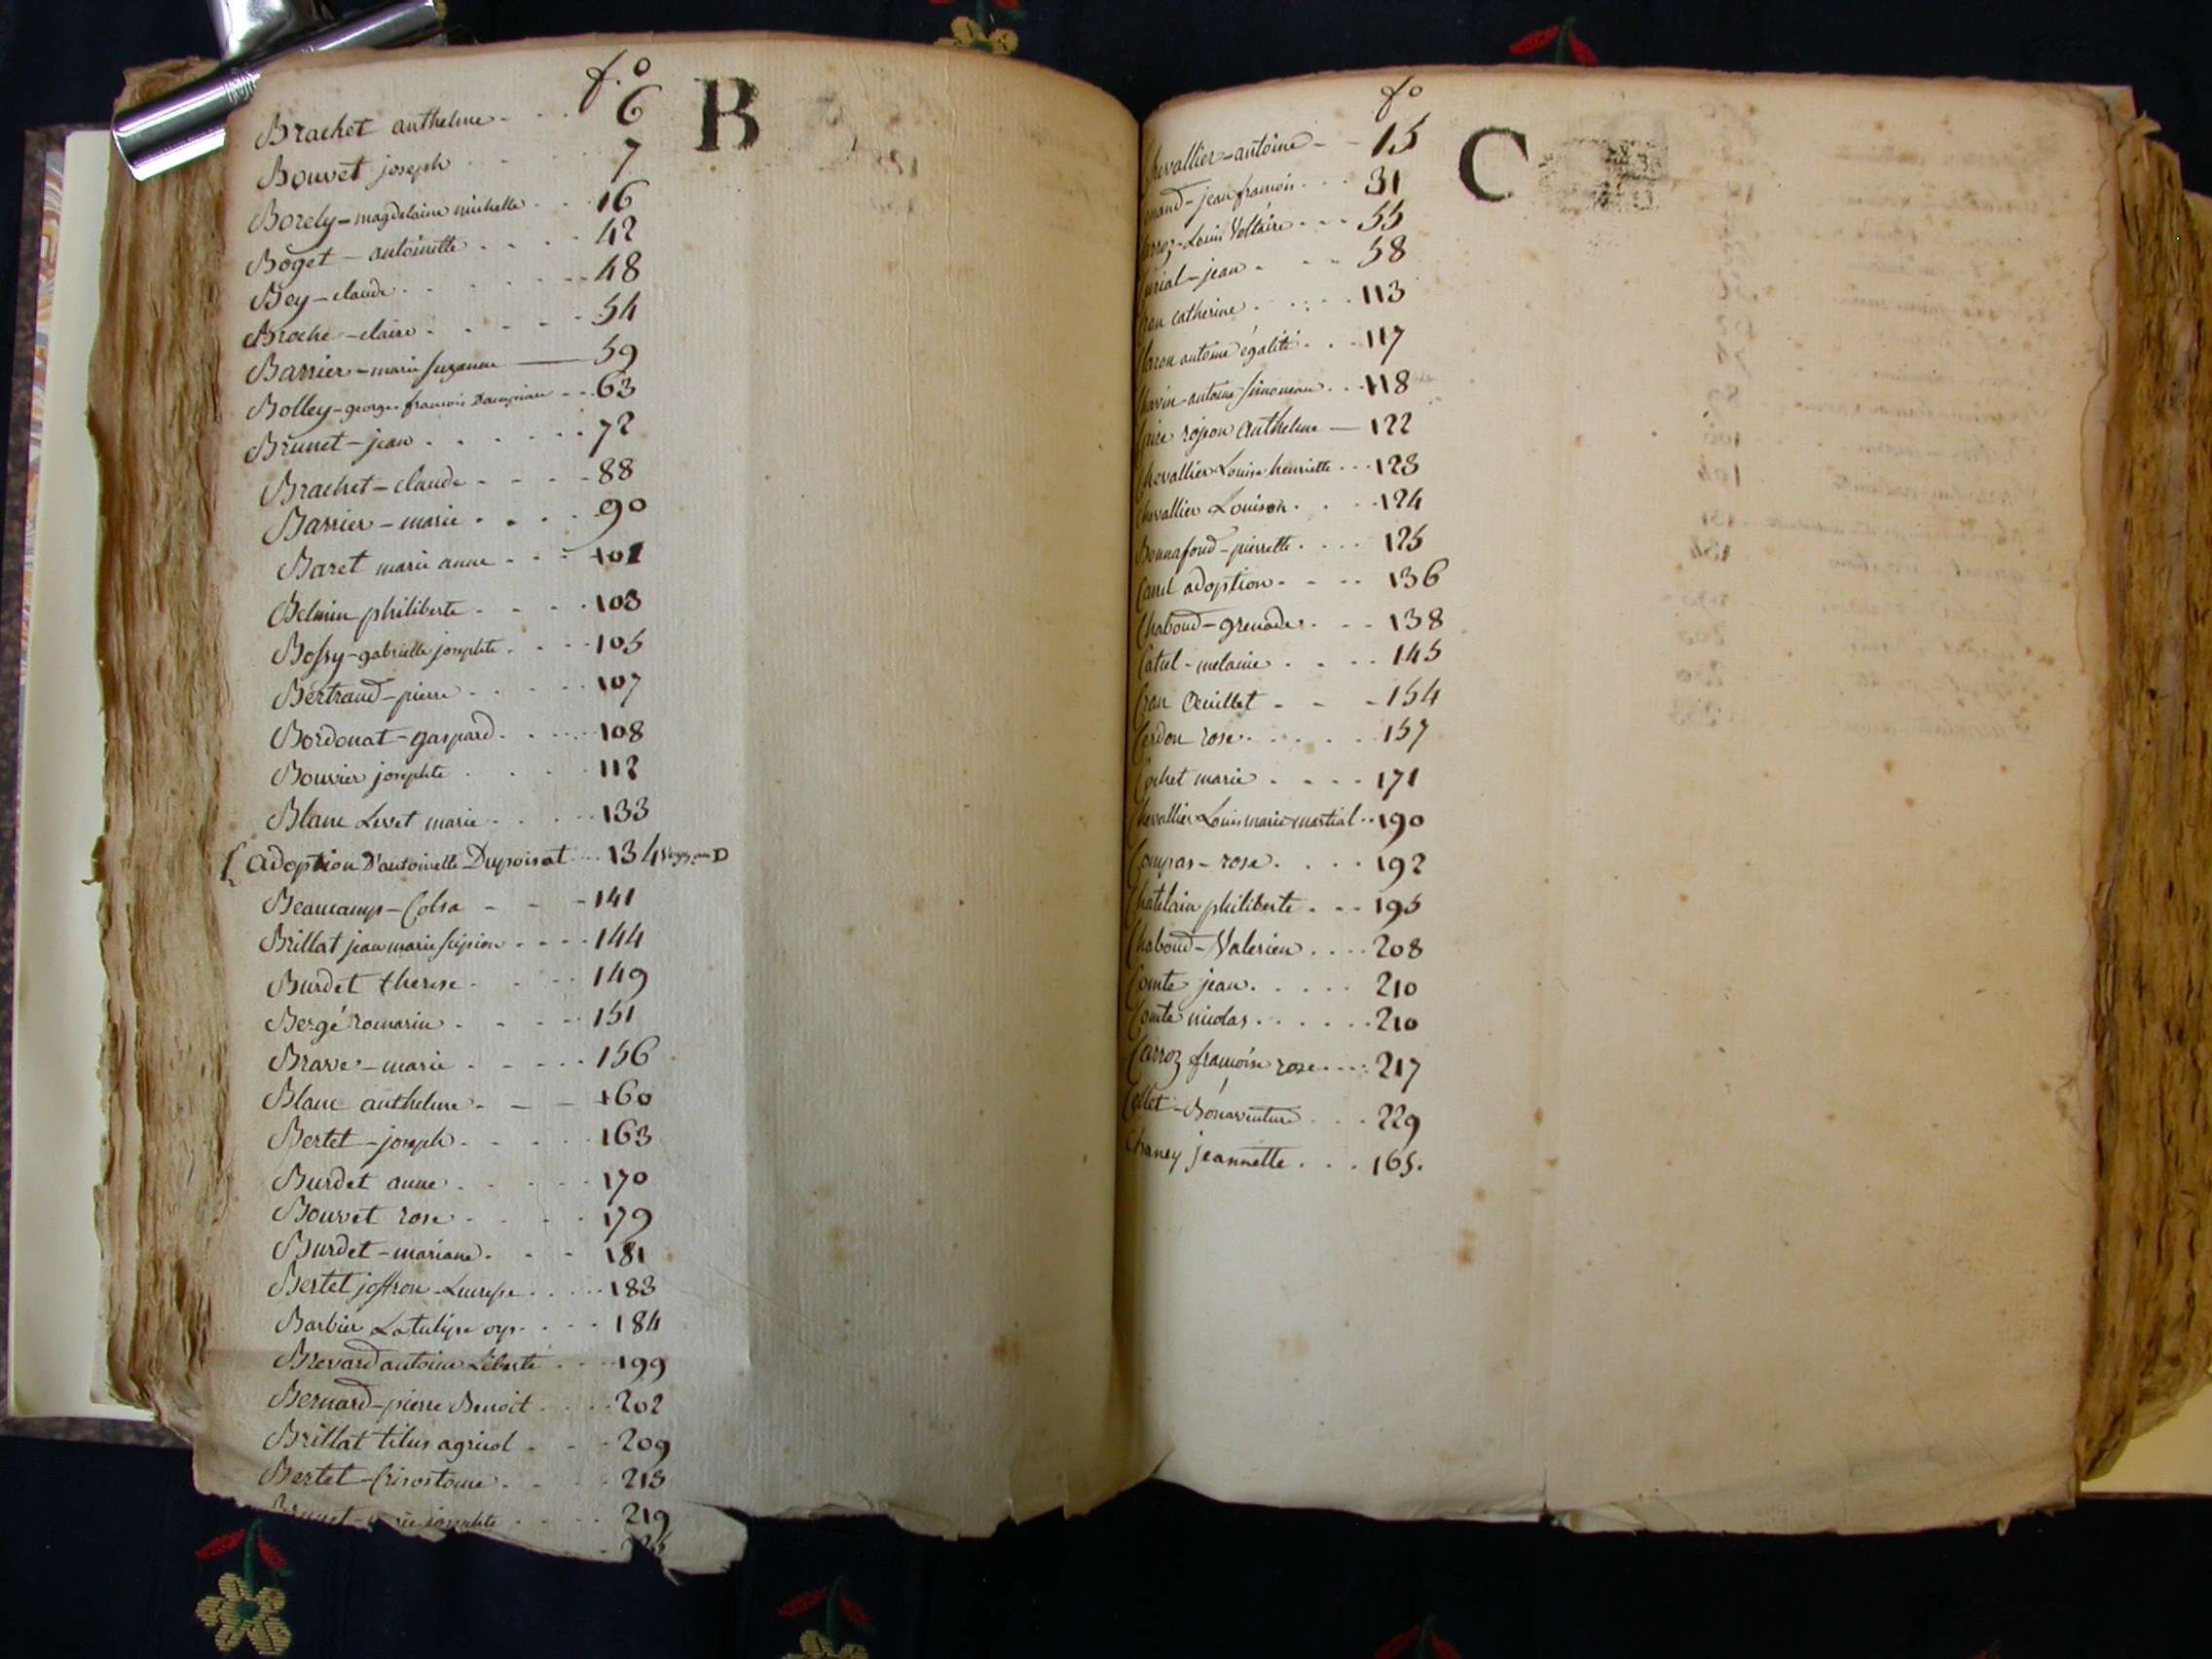 f.º
B
Brachet anthelme 6
Bouvet joseph 7
Borely-magdelaine michelle 16
Boget-antoinette 42
Bey-claude 48
Broche-claire 54
Barrier-marie suzanne 59
Bolley-georges francois 63
Brunet-jean 72
Brachet-claude 88
Barrier-marie 90
Baret marie anne 101
Belmin philiberte 103
Bossy-gabrielle josephte 105
Bertrand-pierre 107
Bordonat-gaspard 108
Bouvier josephte 112
Blanc Levet marie 133
adoption D'antoinette Dupoisat 134 D
Beaucamp-Colsa 141
Brillat jean marie scipion 144
Burdet therese 149
Bergé romarin 151
Brave-marie 156
Blanc anthelme 160
Bertet-joseph 163
Burdet anne 170
Bouvet rose 179
Burdet-mariane 181
Bertet 183
Barbier Latulipe 184
Brevard antoine Liberté 199
Bernard-pierre Benoit 202
Brillat titus agricol 209
Bertet-Crisostome 213
josephte 219
fº
C
Chevallier-antoine 15
jean francois 31
Louis Voltaire 55
jean 58
Cran catherine 113
antoine égalité 117
antoine simoneau 118
rojeon Anthelme 122
Chevallier Louise henriette 123
Chevallier Louison 124
Bonnafond-pierrette 125
Carrel adoption 136
Chaboud-grenade 138
Catel-melanie 145
Cran Oeuillet 154
Cerdon rose 157
Cochet marie 171
Chevallier Louis marie martial 190
Compas-rose 192
Chatelain philiberte 195
Chaboud-Valerien 208
Comte jean 210
Comte nicolas 210
Carroz francoise rose 217
Collet-Bonaventure 229
Chaney jeannette 165.